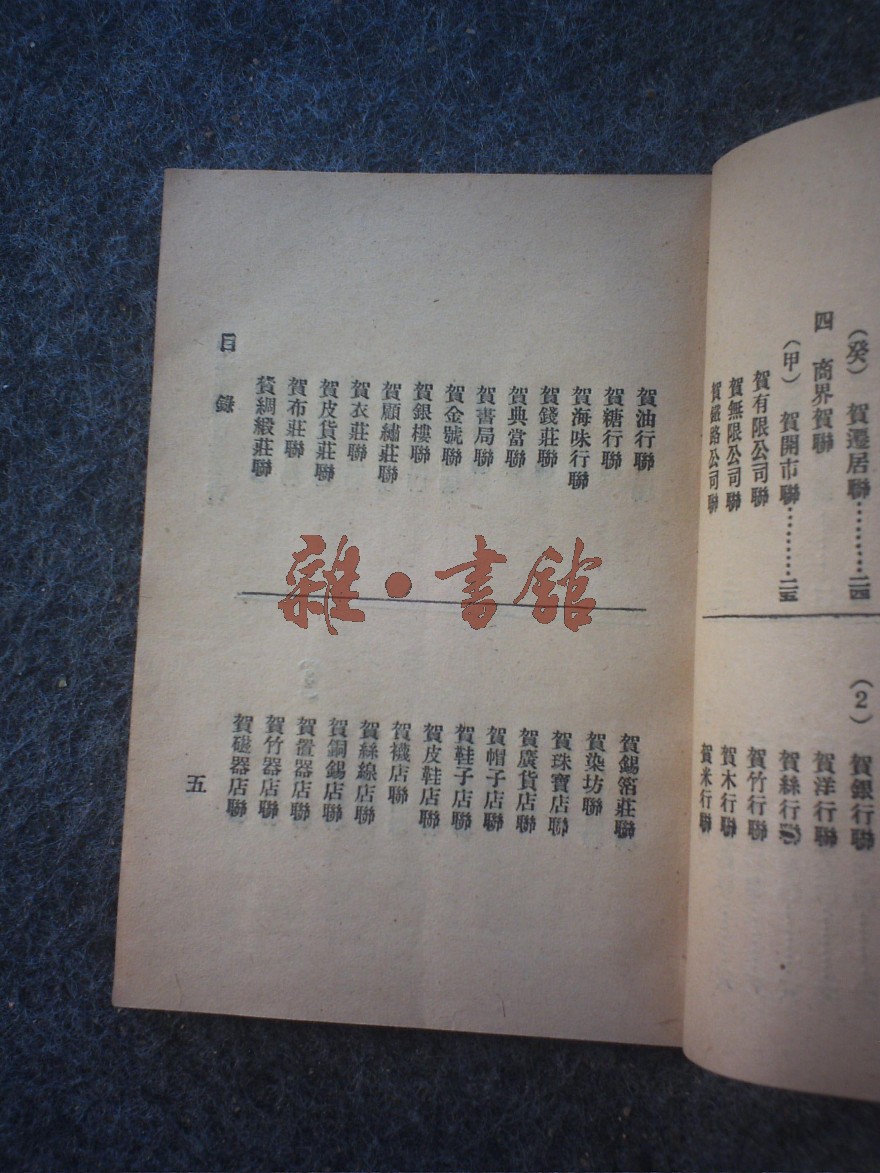 (癸) 賀遷居聯………二四
四 商界賀聯
(甲) 賀開市聯………二五
賀有限公司聯
賀無限公司聯
賀鐵路公司聯
(2) 賀銀行聯
賀洋行聯
賀絲行
賀竹行聯
賀木行聯
賀米行聯
賀油行聯
賀糖行聯
賀海味行聯
賀錢莊聯
賀典當聯
賀書局聯
賀金號聯
賀銀樓聯
賀顧繡莊聯
賀衣莊聯
賀皮貨莊聯
賀布莊聯
賀綢緞莊聯
賀錫箔莊聯
賀染坊聯
賀珠寶店聯
賀廣貨店聯
賀帽子店聯
賀鞋子店聯
賀皮鞋店聯
賀襪店聯
賀絲線店聯
賀銅錫店聯
賀器店聯
賀竹器店聯
賀磁器店聯
目錄
五
雜·書館